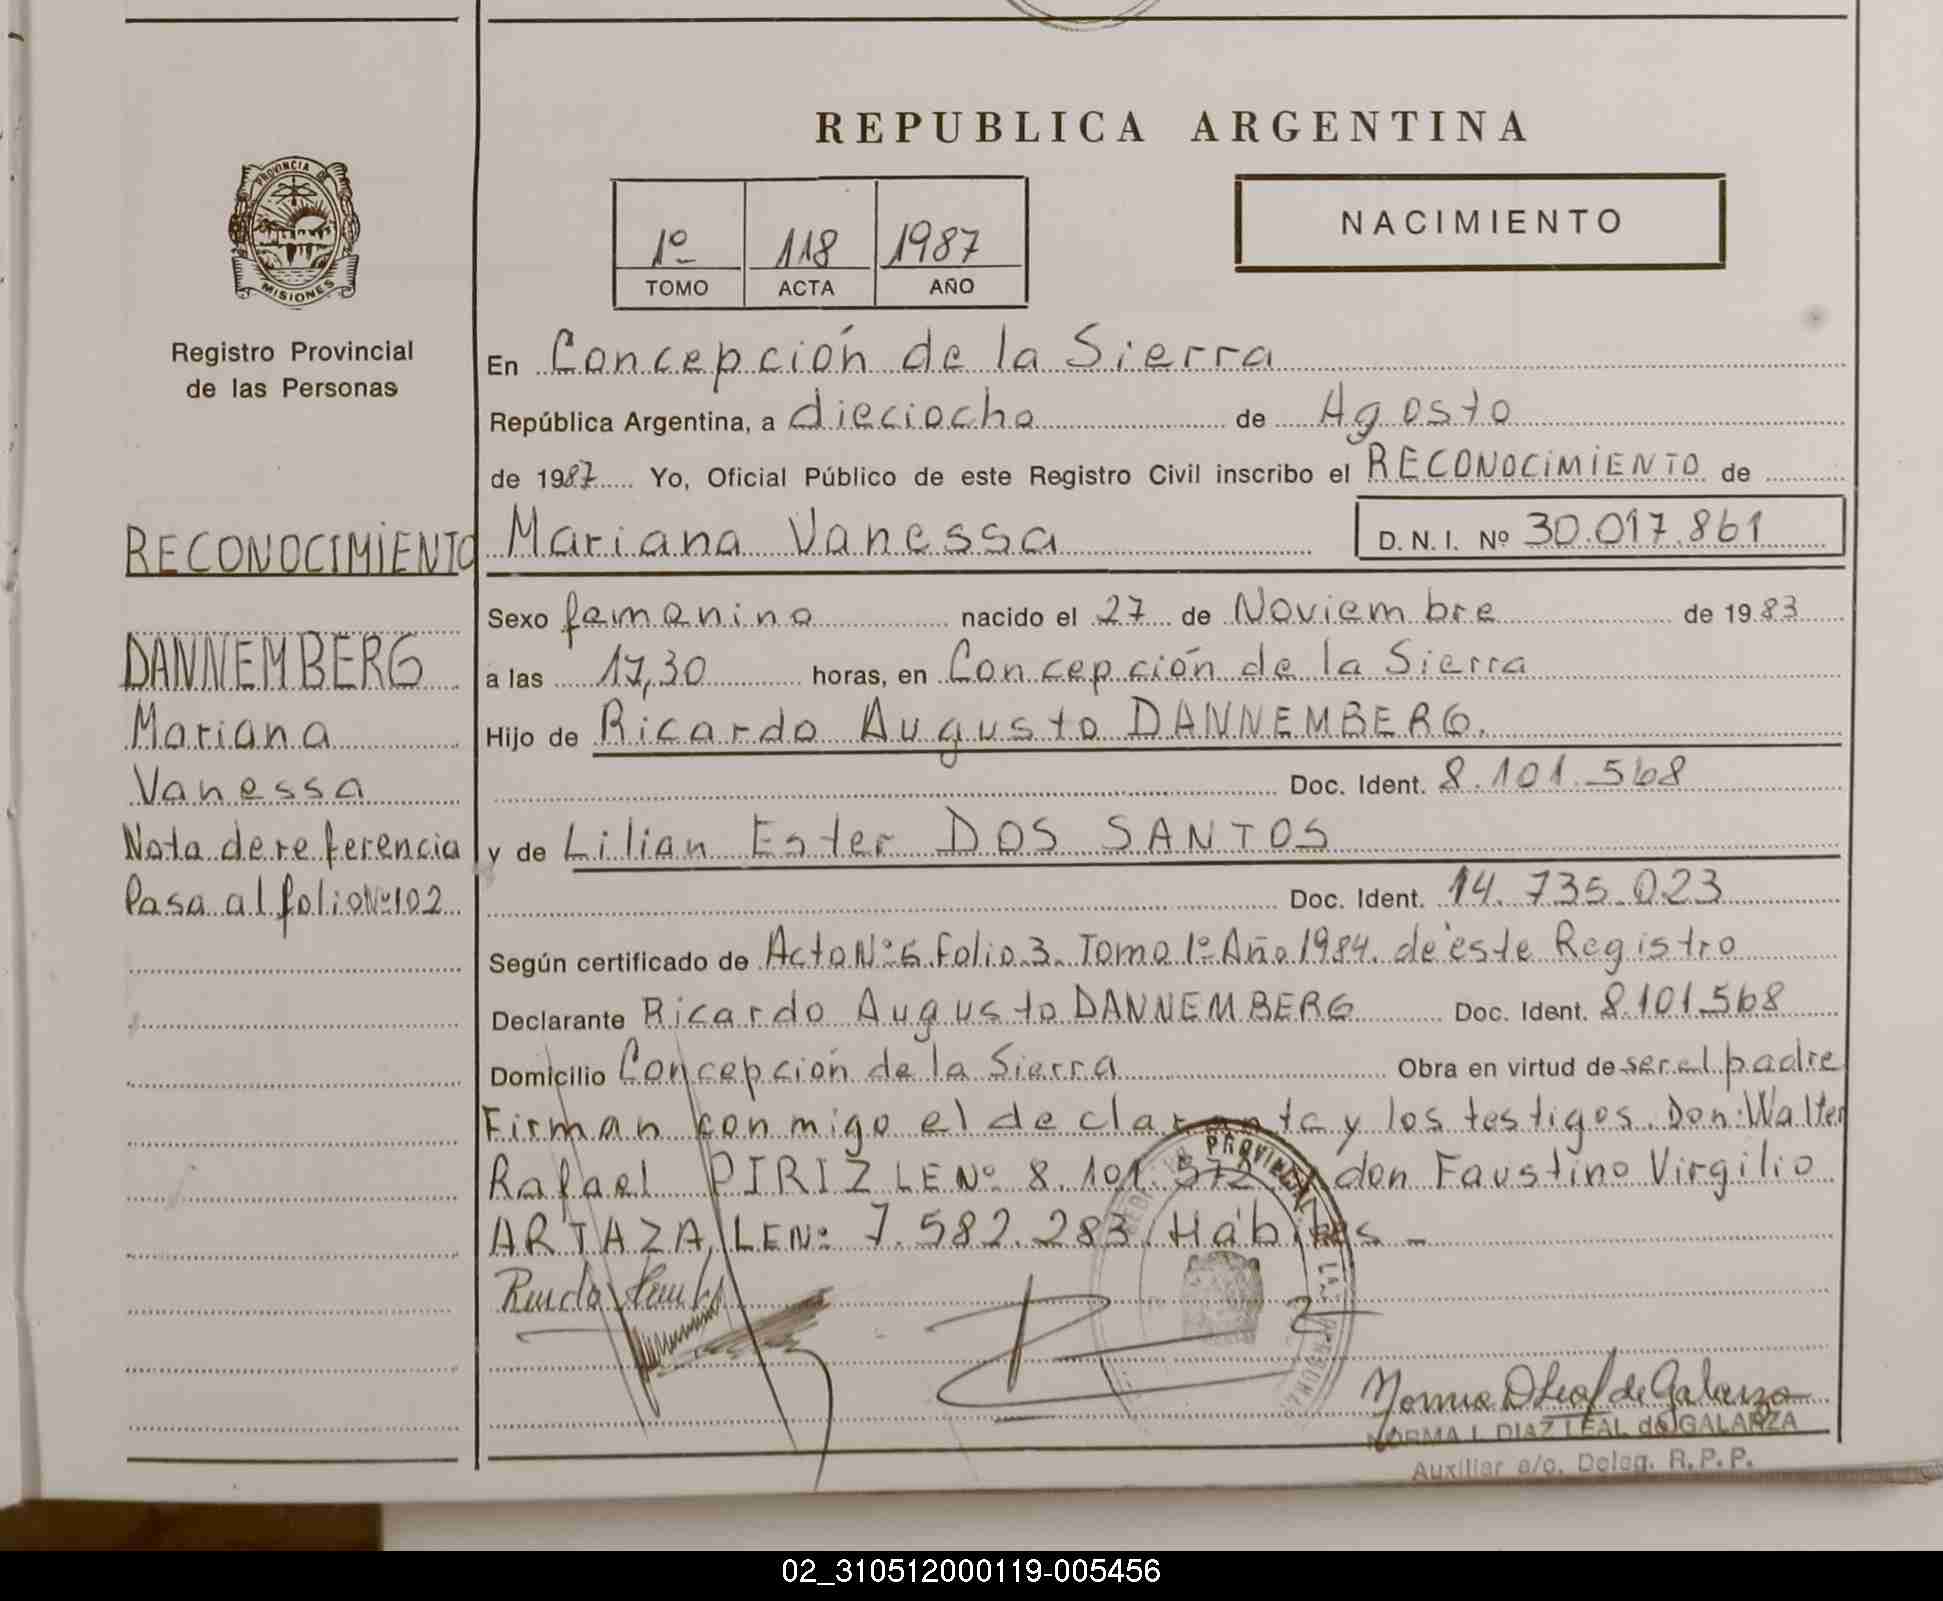 REPUBLICA ARGENTINA
PROVINCIA DE
MISIONES
Registro Provincial
de las Personas
1º 118 1987
TOMO ACTA AÑO
NACIMIENTO
En Concepción de la Sierra
República Argentina, a dieciocho de Agosto
de 1987 Yo, Oficial Público de este Registro Civil inscribo el RECONOCIMIENTO de
Mariana Vanessa D.N.I. Nº 30.017.861
Sexo femenino nacido el 27 de Noviembre de 1983
a las 17,30 horas, en Concepción de la Sierra
Hijo de Ricardo Augusto DANNEMBERG.
Doc. Ident. 8.101.568
y de Lilian Ester DOS SANTOS
Doc. Ident. 14.735.023
Según certificado de Acta Nº 5 Folio 3 Tomo 1º Año 1984. de este Registro
Declarante Ricardo Augusto DANNEMBERG Doc. Ident. 8.101.568
Domicilio Concepción de la Sierra Obra en virtud de ser el padre
Firman conmigo el declarante y los testigos. Don: Walter
Rafael PIRIZ LE Nº 8.101.572 don Faustino Virgilio
ARTAZA, LE Nº 7.582.283. Hábiles –
RECONOCIMIENTO
DANNEMBERG
Mariana
Vanessa
Nota de referencia
Pasa al folio Nº 102
PROVINCIAL
Norma D Leal de Galarza
NORMA I. DIAZ LEAL de GALARZA
Auxiliar a/c. Deleg. R.P.P.
02_310512000119-005456